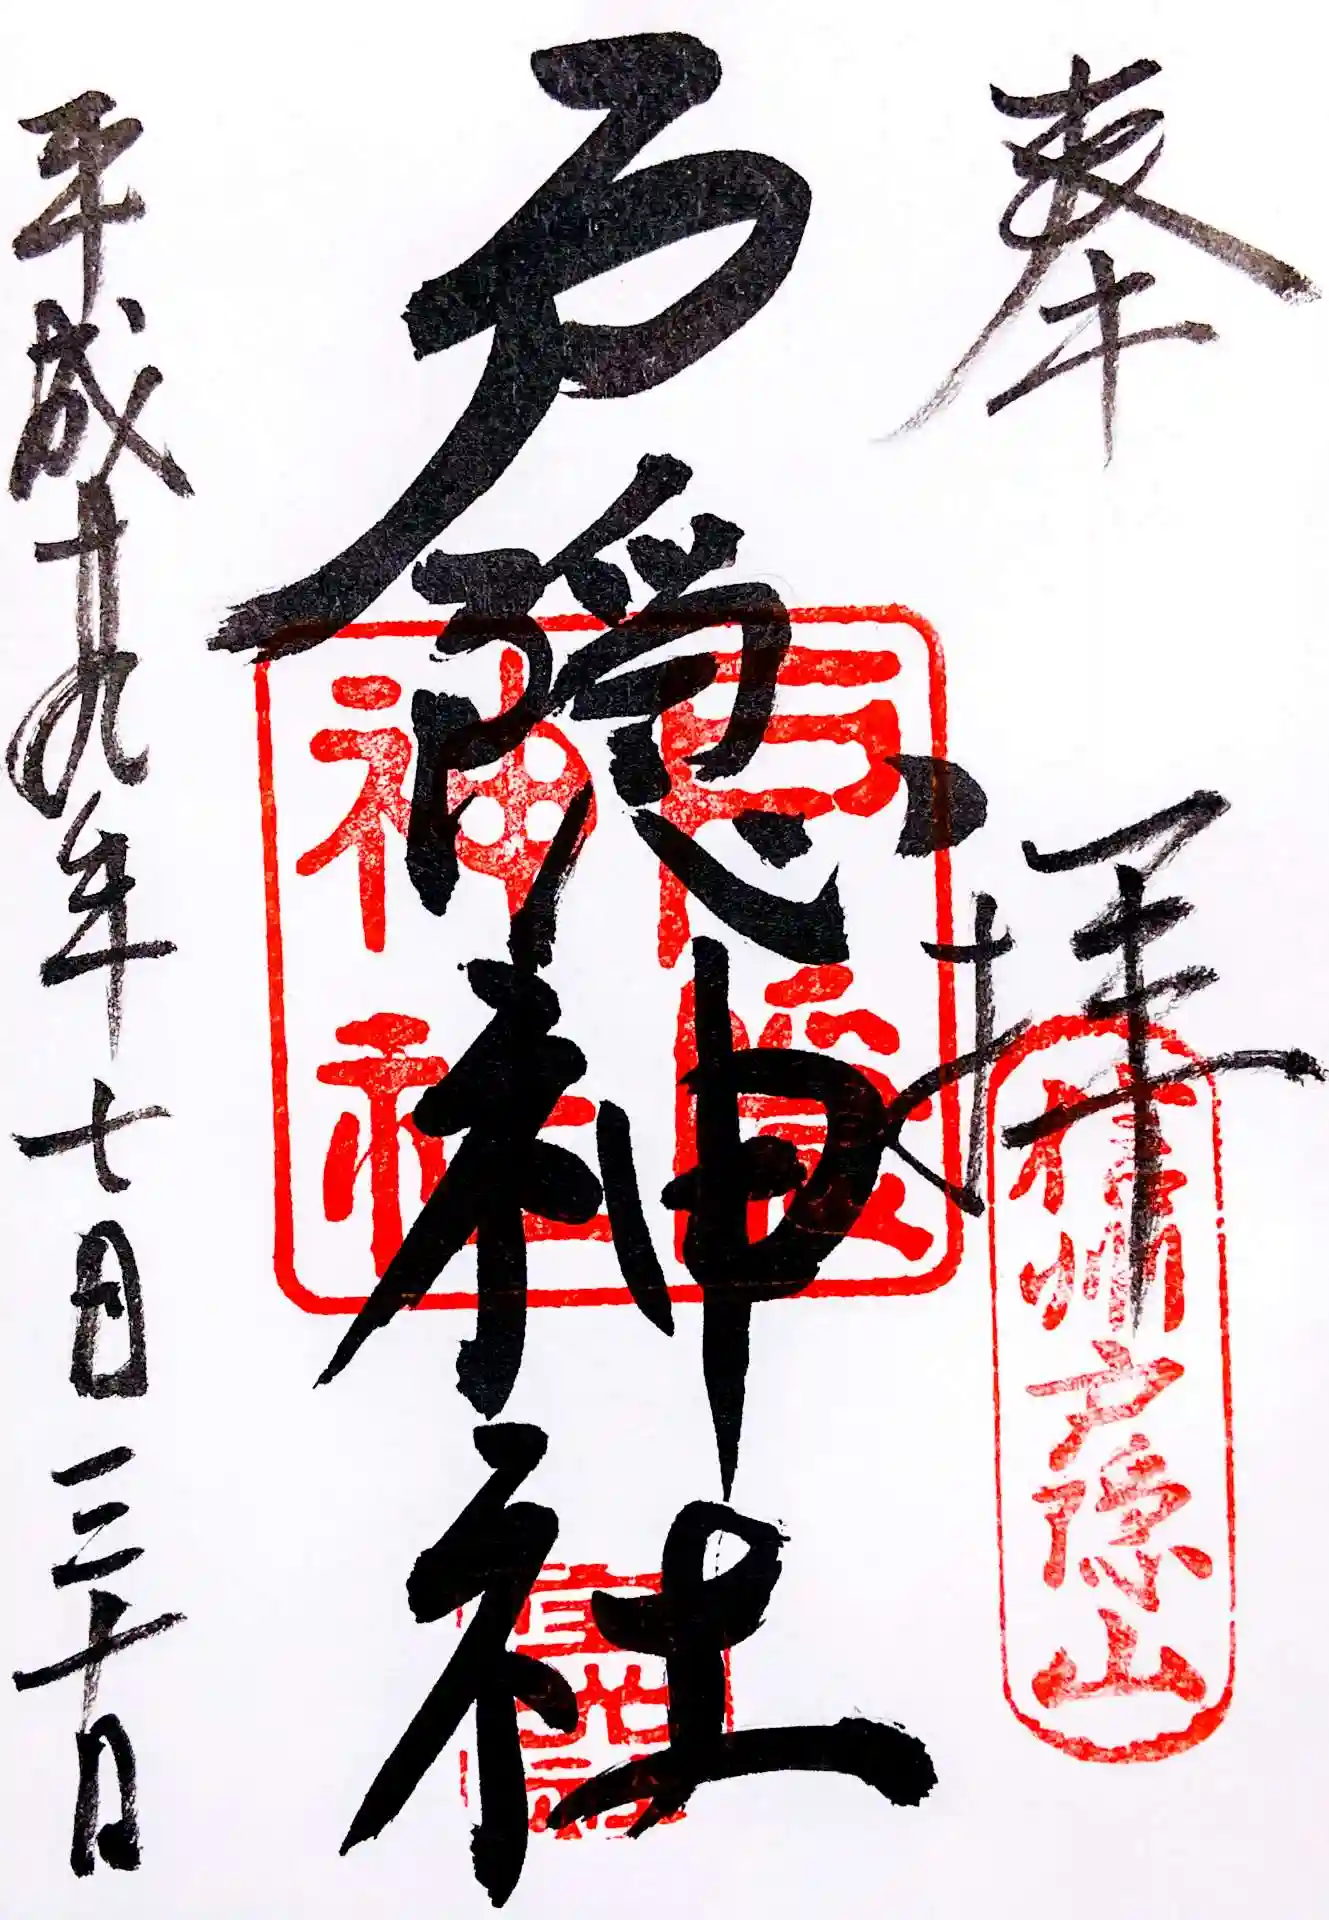 奉拝
信州戸隠山
戸隠神社
戸隠
神社
平成十九年七月三十日